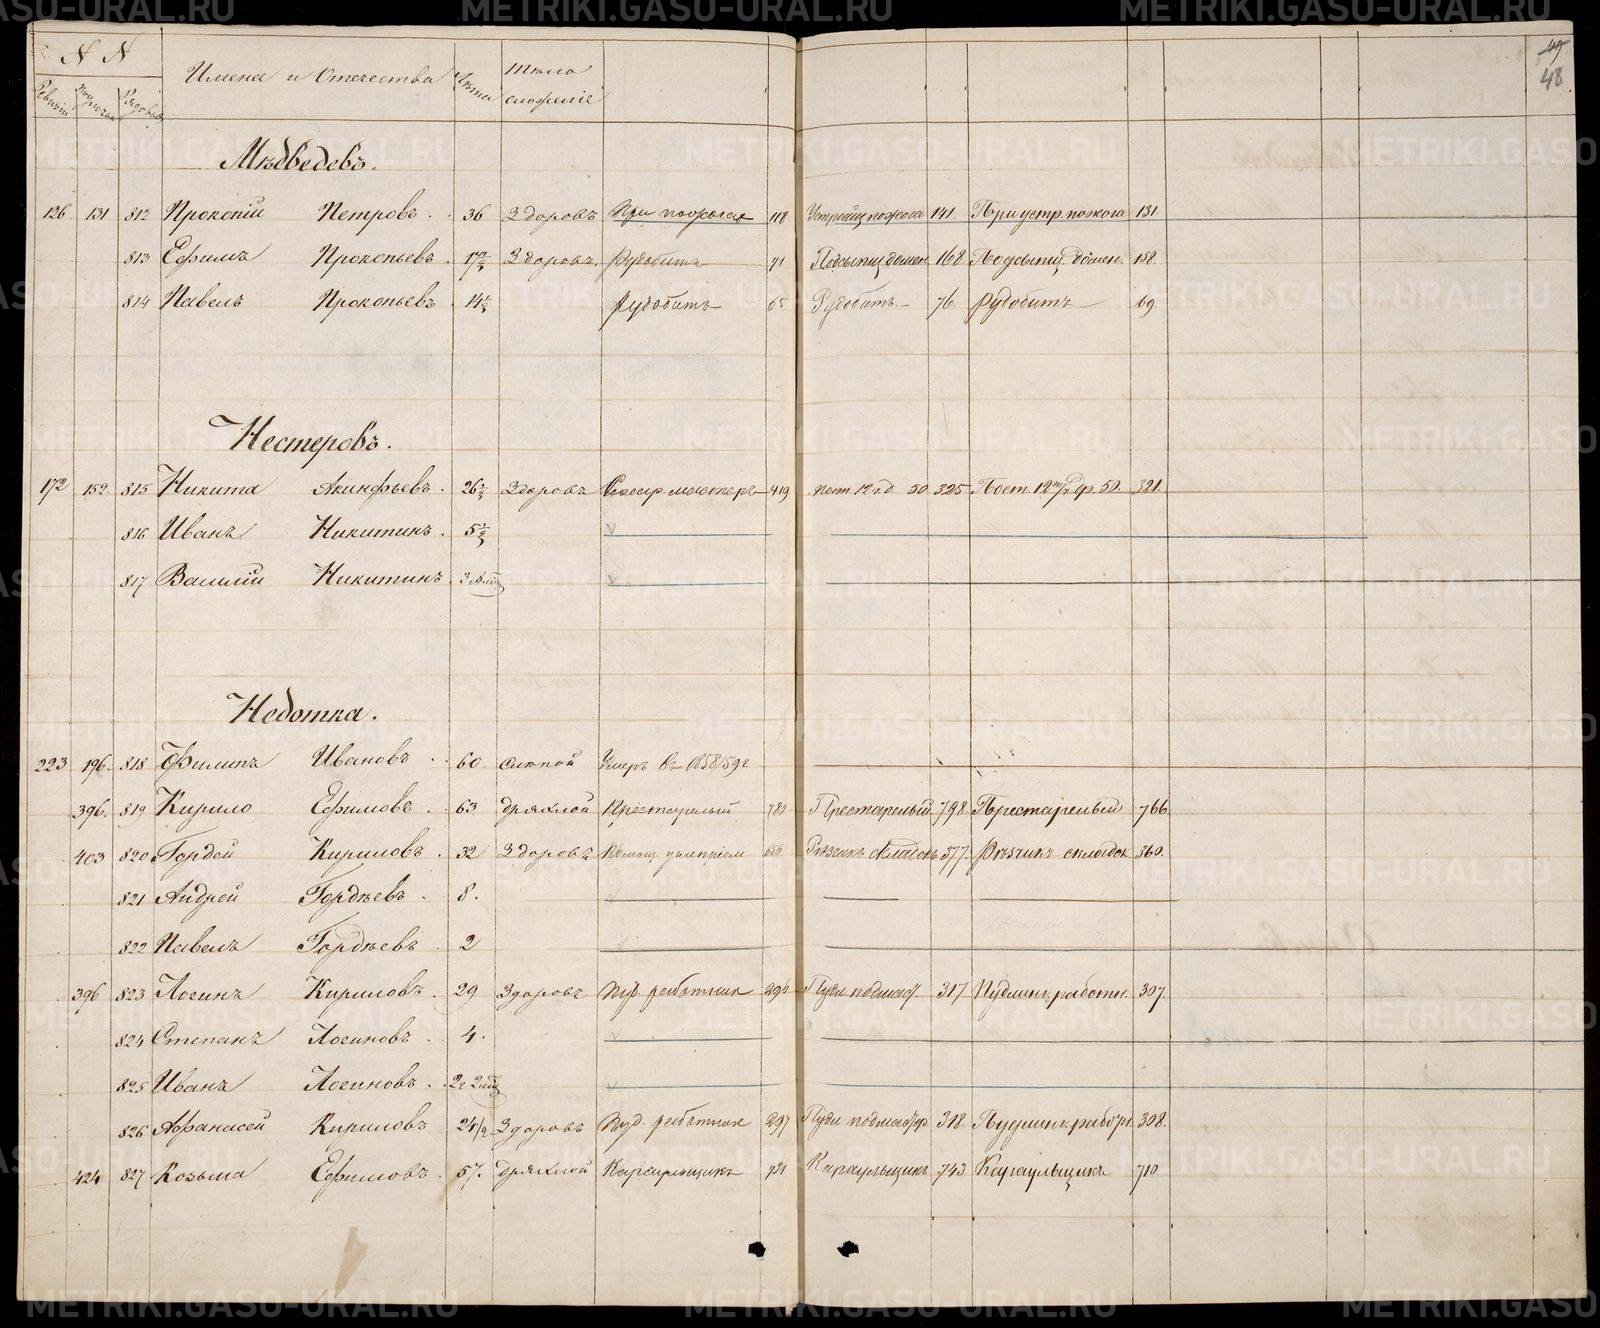 METRIKI.GASO-URAL.RU
49
48
N N Имена и Отечества Лета Тѣло сложеніе
Ревизск Рядовые
Мѣдведевъ.
126 131 812 Прокопій Петровъ. 36 Здоровъ При пожогах 118 пожога 141. При устр. пожога 131
813 Ефимъ Прокопьевъ. 17½ Здоровъ. Рудобитъ 71 Подсыпщ. домен. 168 Подсыпщ. домен. 158.
814 Павелъ Прокопьевъ 14½ Рудобитъ 65 Рудобитъ 76. Рудобитъ 69.
Нестеровъ.
172 159. 815 Никита Акинфьевъ. 26½ Здоровъ мастеръ 419 325 Пост. 321.
816 Иванъ Никитинъ. 5½
817 Василій Никитинъ.
Недотка.
223 196. 818 Филипъ Ивановъ. 60. слѣпой Умеръ въ 1858/59 г
396. 819 Кирило Ефимовъ. 63. дряхлой Престарелый 780 Престарелый 798 Престарелый 766
403 820 Гордей Кириловъ. 32 Здоровъ 656 377. Рѣзчикъ складок 360.
821 Андрей Гордѣевъ. 8.
822 Павелъ Гордѣевъ. 2
396 823 Логинъ Кириловъ. 29 Здоровъ Пуд. работник 296 Пудл. подмаст. 317 Пудлинг. работн. 307.
824 Степанъ Логиновъ. 4.
825 Иванъ Логиновъ.
826 Афанасей Кириловъ 24½ Здоровъ Пуд. работник 297 Пудл. подмаст. 318. Пудлинг. работн. 308.
424 827 Козьма Ефимовъ. 57. дряхлой Караульщикъ 731 Караульщикъ 743 Караульщикъ 710